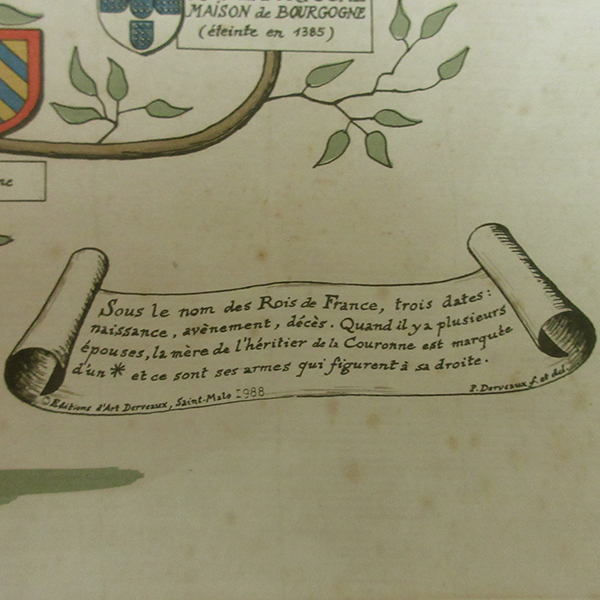 MAISON de BOURGOGNE
(éteinte en 1385)
Sous le nom des Rois de France, trois dates:
naissance, avènement, décès. Quand il y a plusieurs
épouses, la mère de l'héritier de la Couronne est marquée
d'un * et ce sont ses armes qui figurent à sa droite.
© Editions d'Art Derveaux, Saint-Malo 1988
P. Derveaux f. et del.